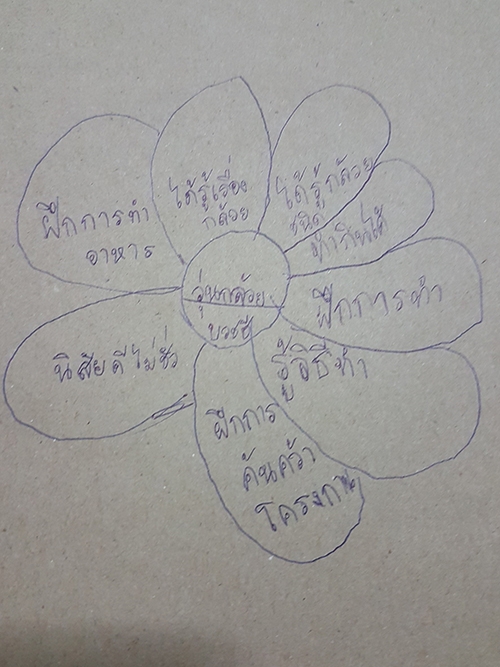 วุ้นกล้วย
บวชชี
ได้รู้เรื่อง
กล้วย
ได้รู้กล้วย
ชนิด
ทำกินได้
ฝึกการทำ
รู้วิธีทำ
ฝึกการ
ค้นคว้า
โครงงาน
นิสัยดีไม่ชั่ว
ฝึกการทำ
อาหาร